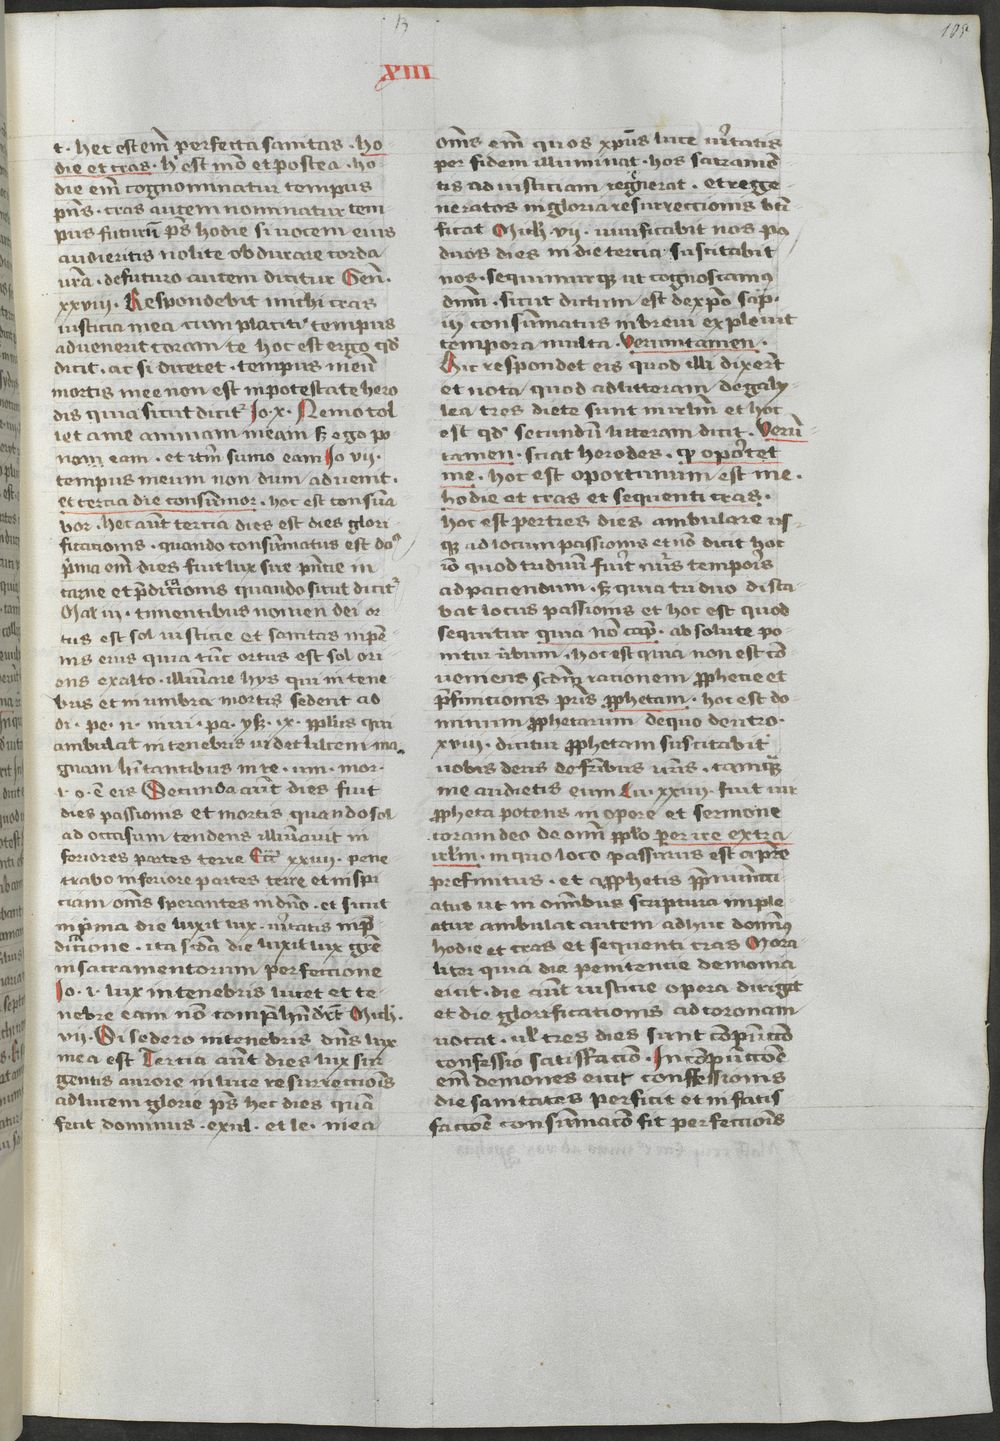 13
105
XIII
t. hec est em̄ perfecta sanitas. ho-
die et cras. h̓ est mō et postea. ho-
die em̄ cognominatur tempus
pn̄s. cras autem nominatur tem
pus futurū p̄s hodie si uocem eius
audieritis nolite obdurare corda
ur̄a. de futuro autem dicitur Gen̄.
xxviii. Respondebit michi cras
iusticia mea cum placiti tempus
aduenerit coram te hoc est ergo qd̓
dicit. ac si diceret. tempus meū
mortis mee non est in potestate hero
dis quia sicut dicit̓ Jo. x. Nemo tol
let a me animam meam sꝫ ego po
nam eam. et itm̄ sumo eam Jo vii.
tempus meum non dum aduenit.
et tercia die consūmor. hoc est consūa
bor. hec aūt tercia dies est dies glori
ficationis. quando consūmatus est
p̄ma em̄ dies fuit lux siue
carne et p̄dicationis quando sicut dicit̓
Mal iii. timentibus nomen dei or
tus est sol iusticie et sanitas in pē-
nis eius quia tūc ortus est sol ori
ens ex alto. illūinare hijs qui in tene
bris et in umbra mortis sedent ad
di. pe. n. in ui. pa. ysꝫ. ix. pp̄lus qui
ambulat in tenebris uidet lucem ma
gnam hītantibus in te. um. mor.
l. o. ē eis Secunda aūt dies fuit
dies passionis et mortis quando sol
ad occasum tendens illūinauit in
feriores partes terre Ecc̄ xxiiii. pene-
trabo inferiore partes terre et inspi
ciam om̄s sperantes in dn̄o. et sicut
in p̄ma die luxit lux. ūitatis in p̄
dicatione. ita sēda die luxit lux gr̄e
in sacramentorum perfectione
Jo. i. lux in tenebris lucet et te-
nebre eam nō comp̄hnderūt Mich.
vii. Si sedero in tenebris dn̄s lux
mea est Tercia aūt dies lux sur
gentis aurore in luce resurrectiōis
ad lucem glorie p̄s hec dies quā
fecit dominus. exul. et le. in ea
om̄s em̄ quos xp̄us luce ūitatis
per fidem illuminat. hos sacramē
tis ad iusticiam regn̄erat. et rege-
neratos in gloria resurrectionis bēi
ficat Mich vii. uiuificabit nos po
duos dies in die tercia suscitabit
nos. sequimurqꝫ ut cognoscamꝯ
dnm̄. sicut dictum est de xp̄o sap̄.
iiij consūmatus in breui expleuit
tempora multa. Verumtamen.
Hic respondet eis quod illi dixer̄t
et nota quod ad litteram de galy-
lea tres diete sunt in irl̄m et hoc
est qd̓ secundū litteram dicit. Verū-
tamen. sciat herodes. qꝫ oportet
me. hoc est oportunum est me.
hodie et cras et sequenti cras.
hoc est per tres dies ambulare us-
qꝫ ad locum passionis et nō dicit hoc
iō quod triduū fuit nr̄is temporis
ad paciendum. sꝫ quia triduo dista
bat locus passionis et hoc est quod
sequitur quia nō cap̄. absolute po-
nitur ūbum. hoc est quia non est cō
ueniens scdm̄ rationem ꝓphecie et
p̄finicionis pr̄is ꝓphetam. hoc est do-
minum ꝓphetarum de quo deutro.
xviii. dicitur ꝓphetam suscitabit
uobis deus de frībus ur̄is. tamqꝫ
me audietis eum Lu. xxiiii. fuit uir
ꝓpheta potens in opere et sermone
coram deo de om̄i pp̄lo perire extra
irl̄m. in quo loco passurus est a pr̄e
prefinitus. et a ꝓphetis p̄nūnci-
atus ut in omnibus scriptura imple-
atur ambulat autem adhuc domīnꝯ
hodie et cras et sequenti cras Mora-
liter quia die penitencie demonia
eicit. die aūt iusticie opera dirigit
et die glorificationis ad coronam
uocat. ul̓ tres dies sunt cōpūctō
confessio satisfactō. In cōpūctōe
em̄ demones eicit confessionis
die sanitates perficit et in satis
factōe consūmatō fit perfectiōis